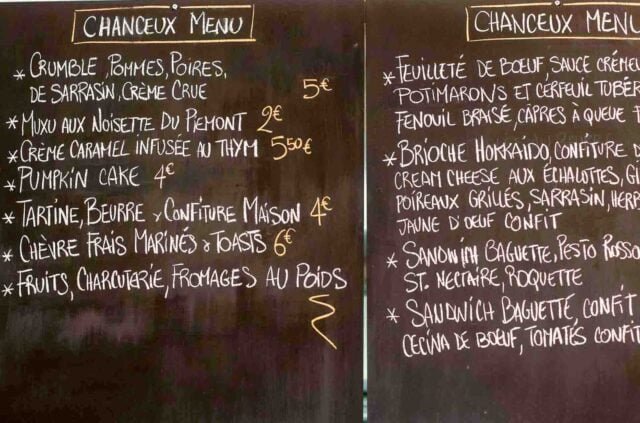 CHANCEUX MENU
* CRUMBLE, POMMES, POIRES,
DE SARRASIN, CRÈME CRUE 5€
* MUXU AUX NOISETTE DU PIEMONT 2€
* CRÈME CARAMEL INFUSÉE AU THYM 5,50€
* PUMPKIN CAKE 4€
* TARTINE, BEURRE & CONFITURE MAISON 4€
* CHÈVRE FRAIS MARINÉS & TOASTS 6€
* FRUITS, CHARCUTERIE, FROMAGES AU POIDS
CHANCEUX MENU
* FEUILLETÉ DE BOEUF, SAUCE
POTIMARONS ET CERFEUIL
FENOUIL BRAISÉ, CÂPRES À QUEUE
* BRIOCHE HOKKAIDO, CONFITURE
CREAM CHEESE AUX ÉCHALLOTES,
POIREAUX GRILLÉS, SARRASIN,
JAUNE D'OEUF CONFIT
* SANDWICH BAGUETTE, PESTO
ST. NECTAIRE, ROQUETTE
* SANDWICH BAGUETTE, CONFIT
CECINA DE BOEUF, TOMATES